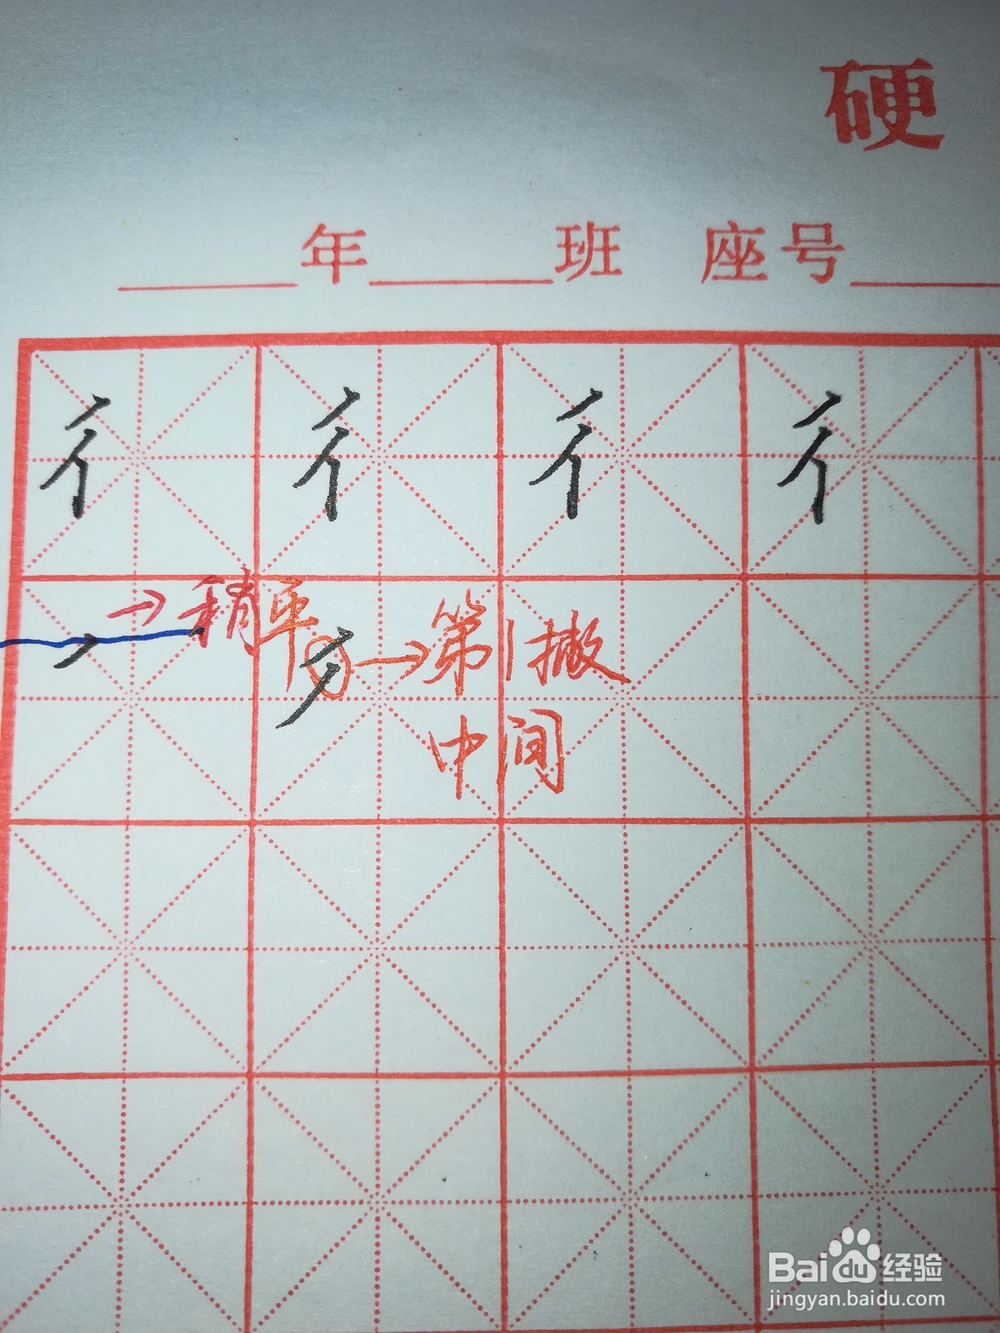 硬
年 班 座号
彳 彳 彳 彳
→稍平
→第1撇
中间
Baidu经验
jingyan.baidu.com